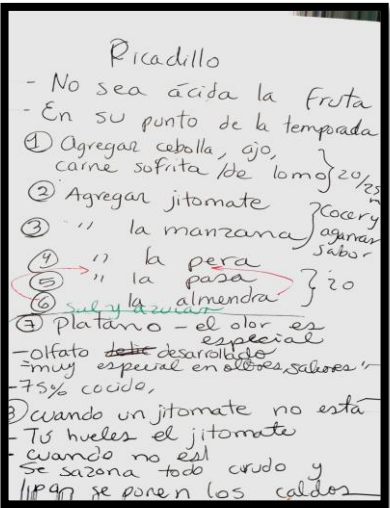 Picadillo
- No sea ácida la fruta
- En su punto de la temporada
① Agregar cebolla, ajo,
carne sofrita /de lomo } 20/25 m
② Agregar jitomate
③ " la manzana } Cocer y agarrar sabor
④ " la pera
⑤ " la pasa
⑥ " la almendra } 20
sal y azúcar
⑦ Platano - el olor es
especial
- olfato desarrollado
"muy especial en olores, sabores"
- 75% cocido,
8) cuando un jitomate no está
- Tú hueles el jitomate
- cuando no es
se sazona todo crudo y
se ponen los caldos